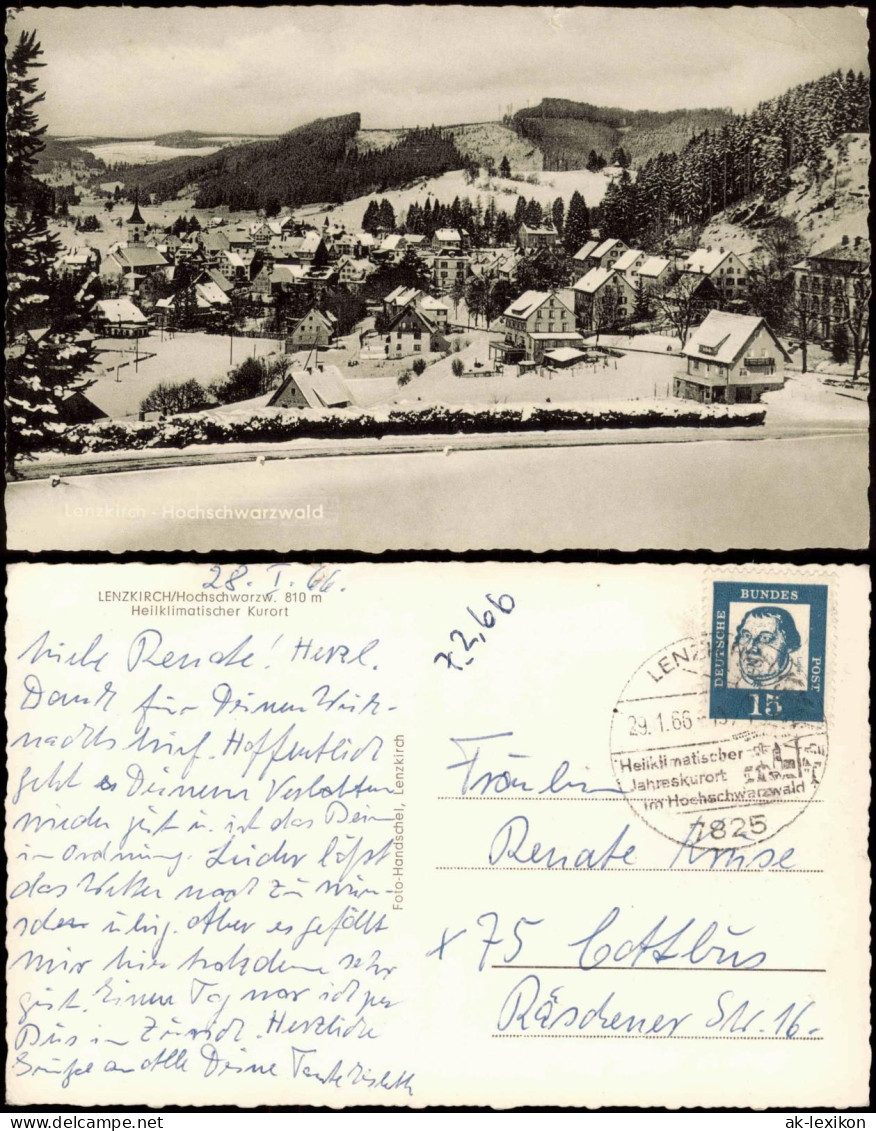 Lenzkirch - Hochschwarzwald
28. I. 66.
LENZKIRCH/Hochschwarzw. 810 m
Heilklimatischer Kurort
7.2.66
Liebe Renate! Herzl.
Dank für Deinen Weih-
nachtsbrief. Hoffentlich
geht es Deinem Verlobten
wieder gut u. ist das Bein
in Ordnung. Leider läßt
das Wetter noch zu wün-
schen übrig. Aber es gefällt
mir hier trotzdem sehr
gut. Einen Tag war ich per
Bus in Zürich. Herzliche
Grüße an alle Deine Tante
Foto-Handschel, Lenzkirch
DEUTSCHE BUNDES POST
15
LENZKIRCH
29.1.66
Heilklimatischer
Jahreskurort
im Hochschwarzwald
7825
Fräulein
Renate Kruse
x 75 Cottbus
Räschener Str. 16.
ak-ansichtskarten.de
ak-lexikon